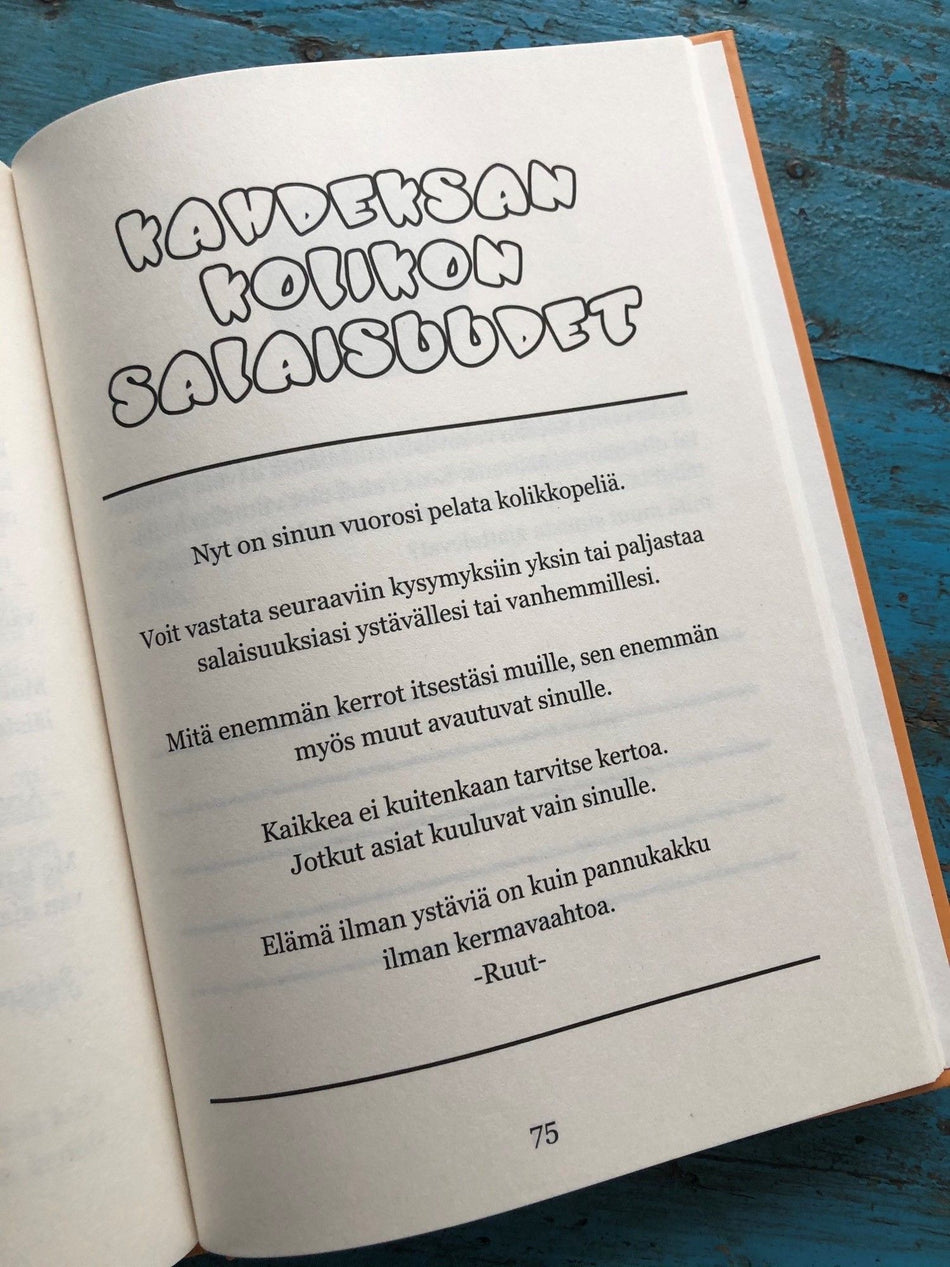 KAHDEKSAN
KOLIKON
SALAISUUDET
Nyt on sinun vuorosi pelata kolikkopeliä.
Voit vastata seuraaviin kysymyksiin yksin tai paljastaa
salaisuuksiasi ystävällesi tai vanhemmillesi.
Mitä enemmän kerrot itsestäsi muille, sen enemmän
myös muut avautuvat sinulle.
Kaikkea ei kuitenkaan tarvitse kertoa.
Jotkut asiat kuuluvat vain sinulle.
Elämä ilman ystäviä on kuin pannukakku
ilman kermavaahtoa.
-Ruut-
75